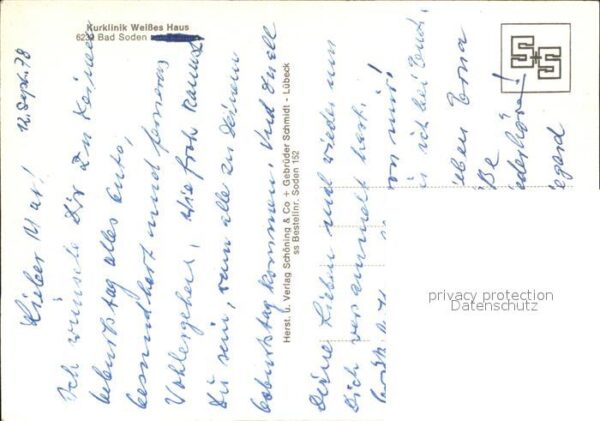 Kurklinik Weißes Haus
6232 Bad Soden
12. Sept. 78
Lieber
Ich wünsche Dir zu Deinem
Geburtstag alles Gute,
Gesundheit und ferneres
Wohlergehen. Wie froh kannst
Du sein, wenn alle zu Deinem
Geburtstag kommen. Und Du all
Deine Lieben mal wieder um
Dich versammelt hast.
von mir!
ich bei Euch.
lieben Erna
Herst. u. Verlag Schöning & Co + Gebrüder Schmidt - Lübeck
ss Bestellnr. Soden 152
privacy protection
Datenschutz